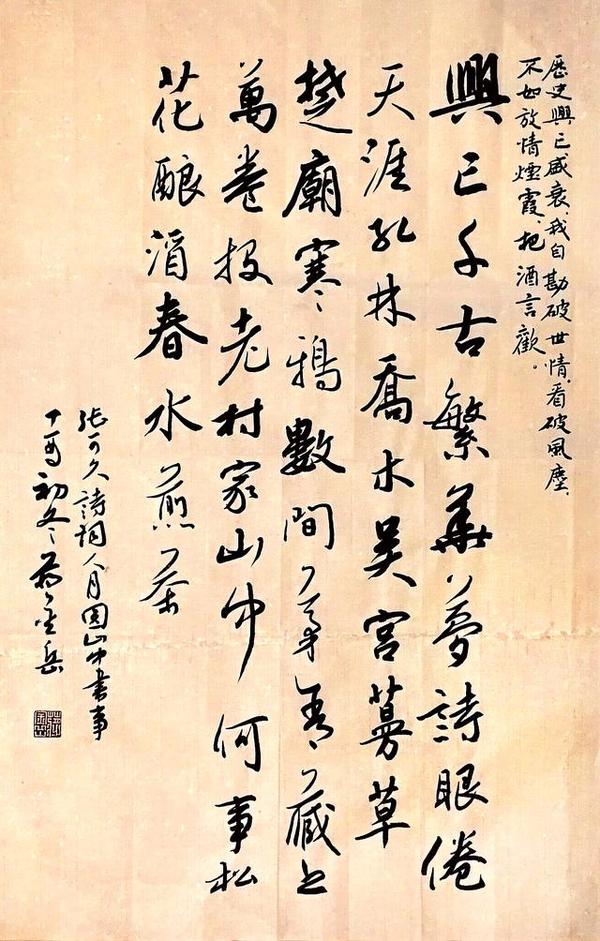 歷史興亡盛衰、我自勘破世情、看破風塵、
不如放情煙霞、把酒言歡。
興亡千古繁華夢詩眼倦
天涯孔林喬木吳宮蔓草
楚廟寒鴉數間茅舍藏書
萬卷投老村家山中何事松
花釀酒春水煎茶
張可久詩詞人月圓山中書事
丁酉初冬岳